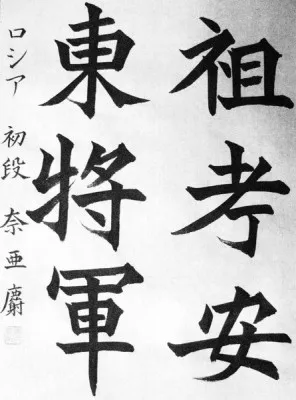 祖考安
東將軍
ロシア 初段 奈亜麝